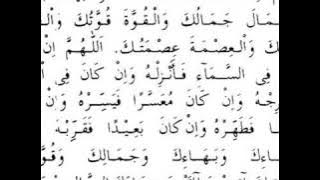 جَمَالُكَ وَالْقُوَّةَ قُوَّتُكَ وَالْـ
وَالْعِصْمَةَ عِصْمَتُكَ. اَللّٰهُمَّ اِنْ
فِى السَّمَآءِ فَأَنْزِلْهُ وَاِنْ كَانَ فِى
وَاِنْ كَانَ مُعَسَّرًا فَيَسِّرْهُ وَاِنْ
فَطَهِّرْهُ وَاِنْ كَانَ بَعِيْدًا فَقَرِّبْهُ
وَبَهَاءِكَ وَجَمَالِكَ وَقُوَّ